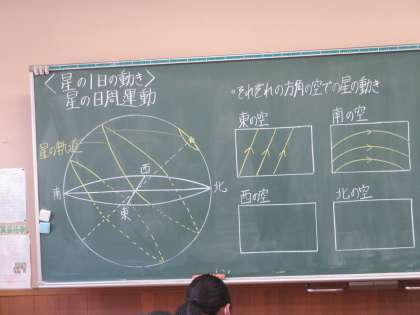 <星の1日の動き>
星の日周運動
星の軌道
西
南
北
東
°それぞれの方角の空での星の動き
東の空
南の空
西の空
北の空